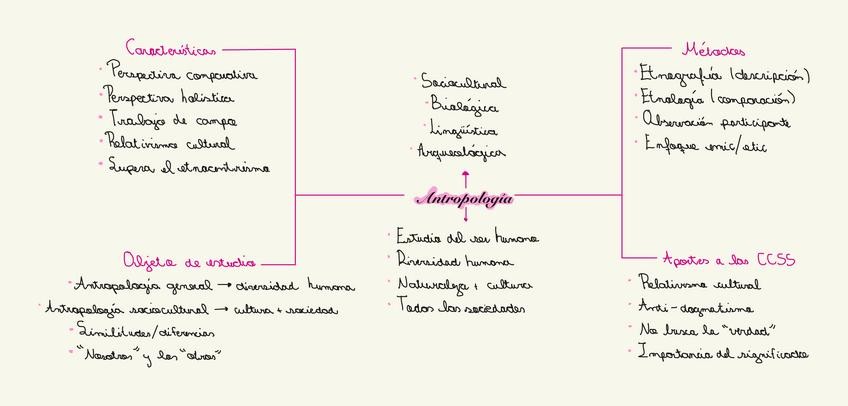 Características
Perspectiva comparativa
Perspectiva holística
Trabajo de campo
Relativismo cultural
Supera el etnocentrismo
Objeto de estudio
Antropología general → diversidad humana
Antropología sociocultural → cultura + sociedad
Similitudes/diferencias
"Nosotros" y los "otros"
Sociocultural
Biológica
Lingüística
Arqueológica
Antropología
Estudio del ser humano
Diversidad humana
Naturaleza + cultura
Todas las sociedades
Métodos
Etnografía (descripción)
Etnología (comparación)
Observación participante
Enfoque emic/etic
Aportes a las CCSS
Relativismo cultural
Anti-dogmatismo
No busca la "verdad"
Importancia del significado